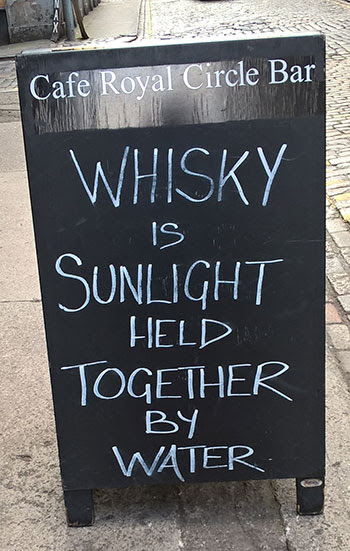 Cafe Royal Circle Bar
WHISKY
IS
SUNLIGHT
HELD
TOGETHER
BY
WATER